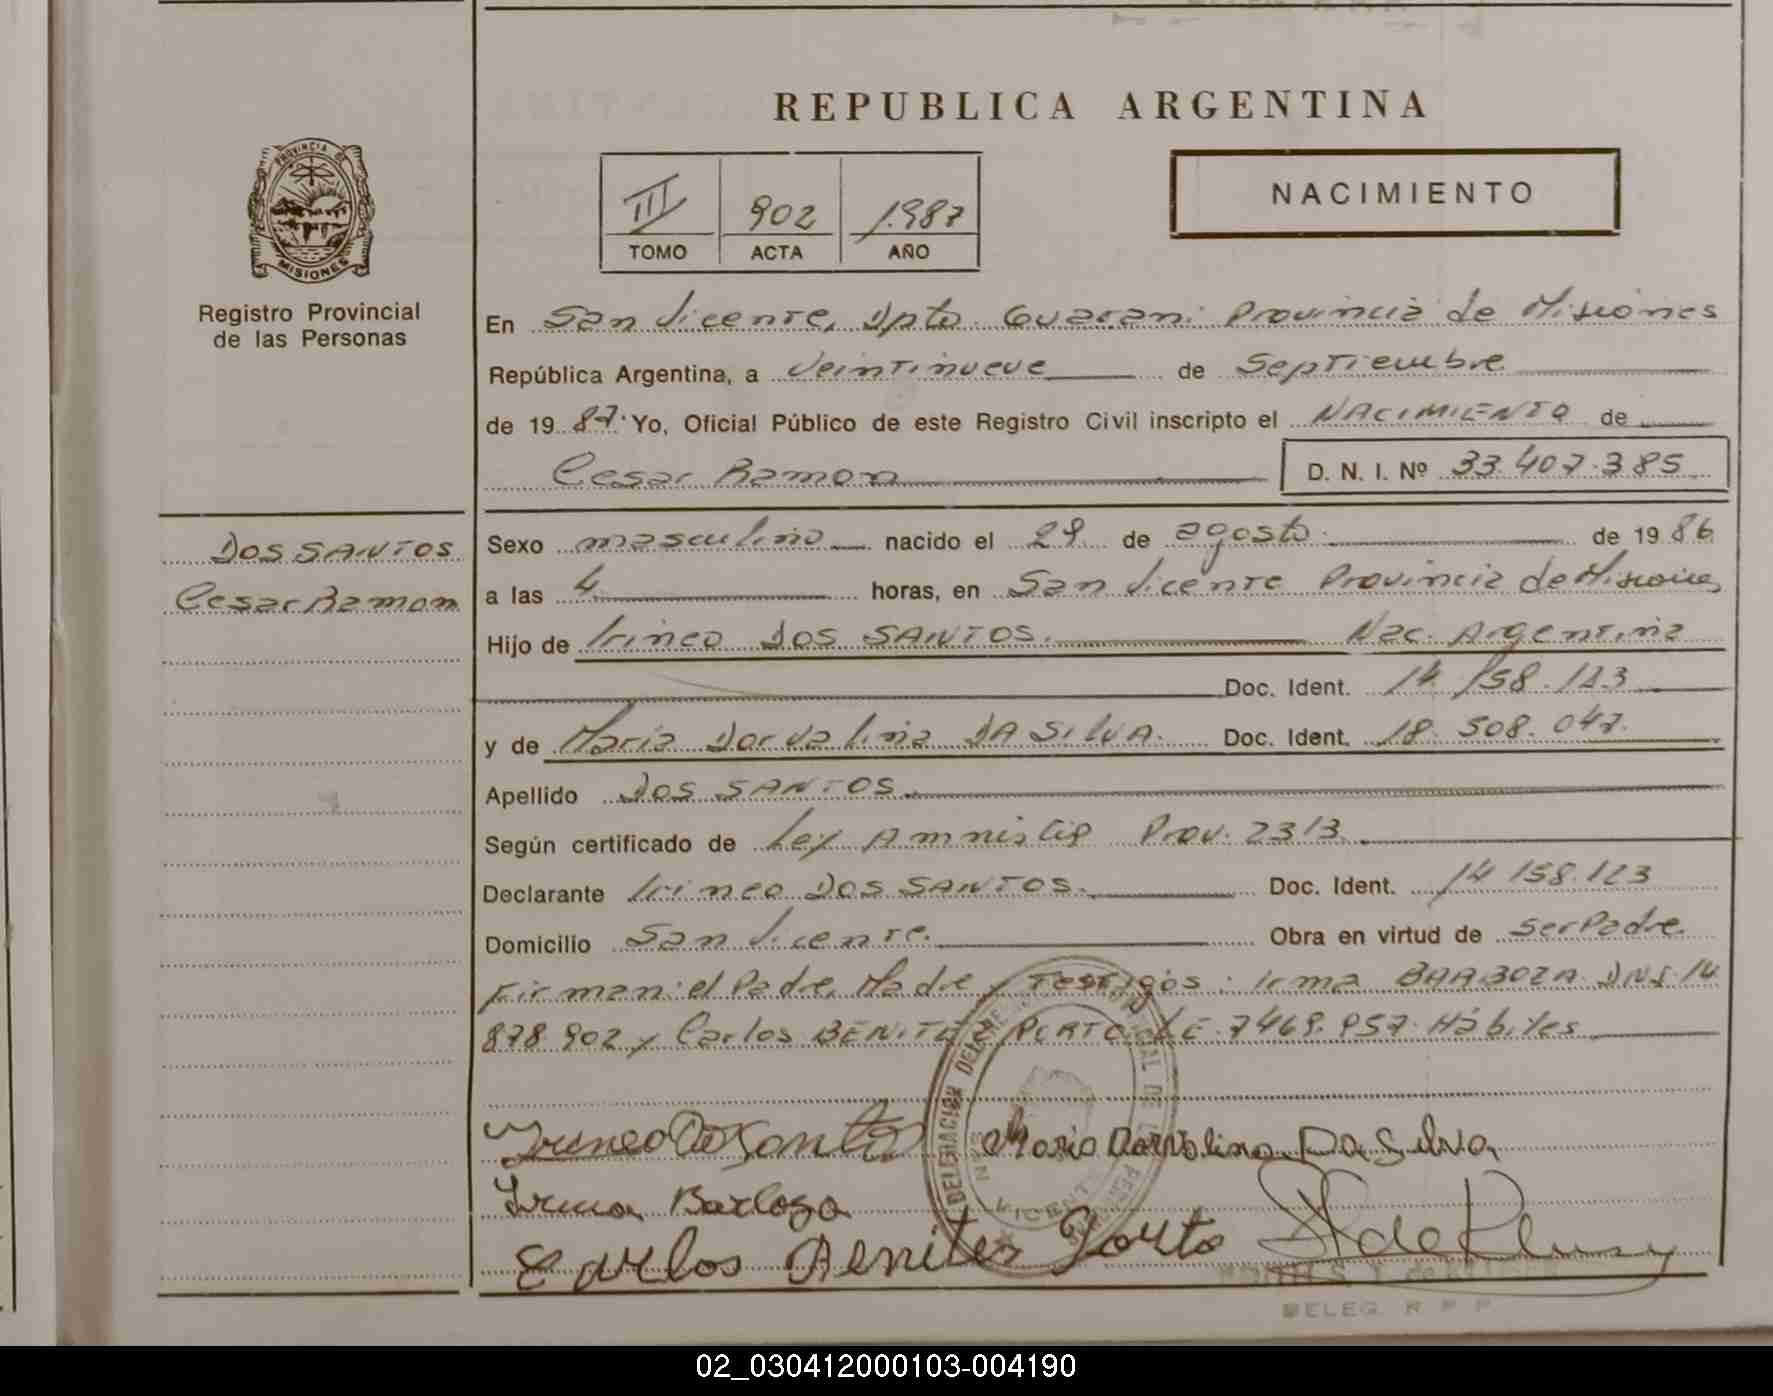 REPUBLICA ARGENTINA
PROVINCIA DE
MISIONES
Registro Provincial
de las Personas
III 902 1987
TOMO ACTA AÑO
NACIMIENTO
En San Vicente, Dpto. Guarani Provincia de Misiones
República Argentina, a Veintinueve de Septiembre
de 1987. Yo, Oficial Público de este Registro Civil inscripto el NACIMIENTO de
Cesar Ramon D. N. I. Nº 33.407.385
DOS SANTOS
Cesar Ramon
Sexo masculino nacido el 29 de agosto de 1986
a las 4 horas, en San Vicente Provincia de Misiones
Hijo de Irineo DOS SANTOS. Nac. Argentina
Doc. Ident. 14.158.123
y de Maria Dorvalina DA SILVA. Doc. Ident. 18.508.047.
Apellido DOS SANTOS
Según certificado de Ley Amnistia Prov. 2313.
Declarante Irineo DOS SANTOS. Doc. Ident. 14.158.123
Domicilio San Vicente. Obra en virtud de ser Padre.
Firman: el Padre, Madre y Testigos: Irma BARBOZA DNI 14
878.902 y Carlos BENITEZ PORTO LE 7.469.957. Hábiles
Irineo Do Santo Maria Dorvalina Da Silva
Irma Barboza
Carlos Beniter Porto
DELEGACION DEL
SAN VICENTE
DELEG. R P P
02_030412000103-004190